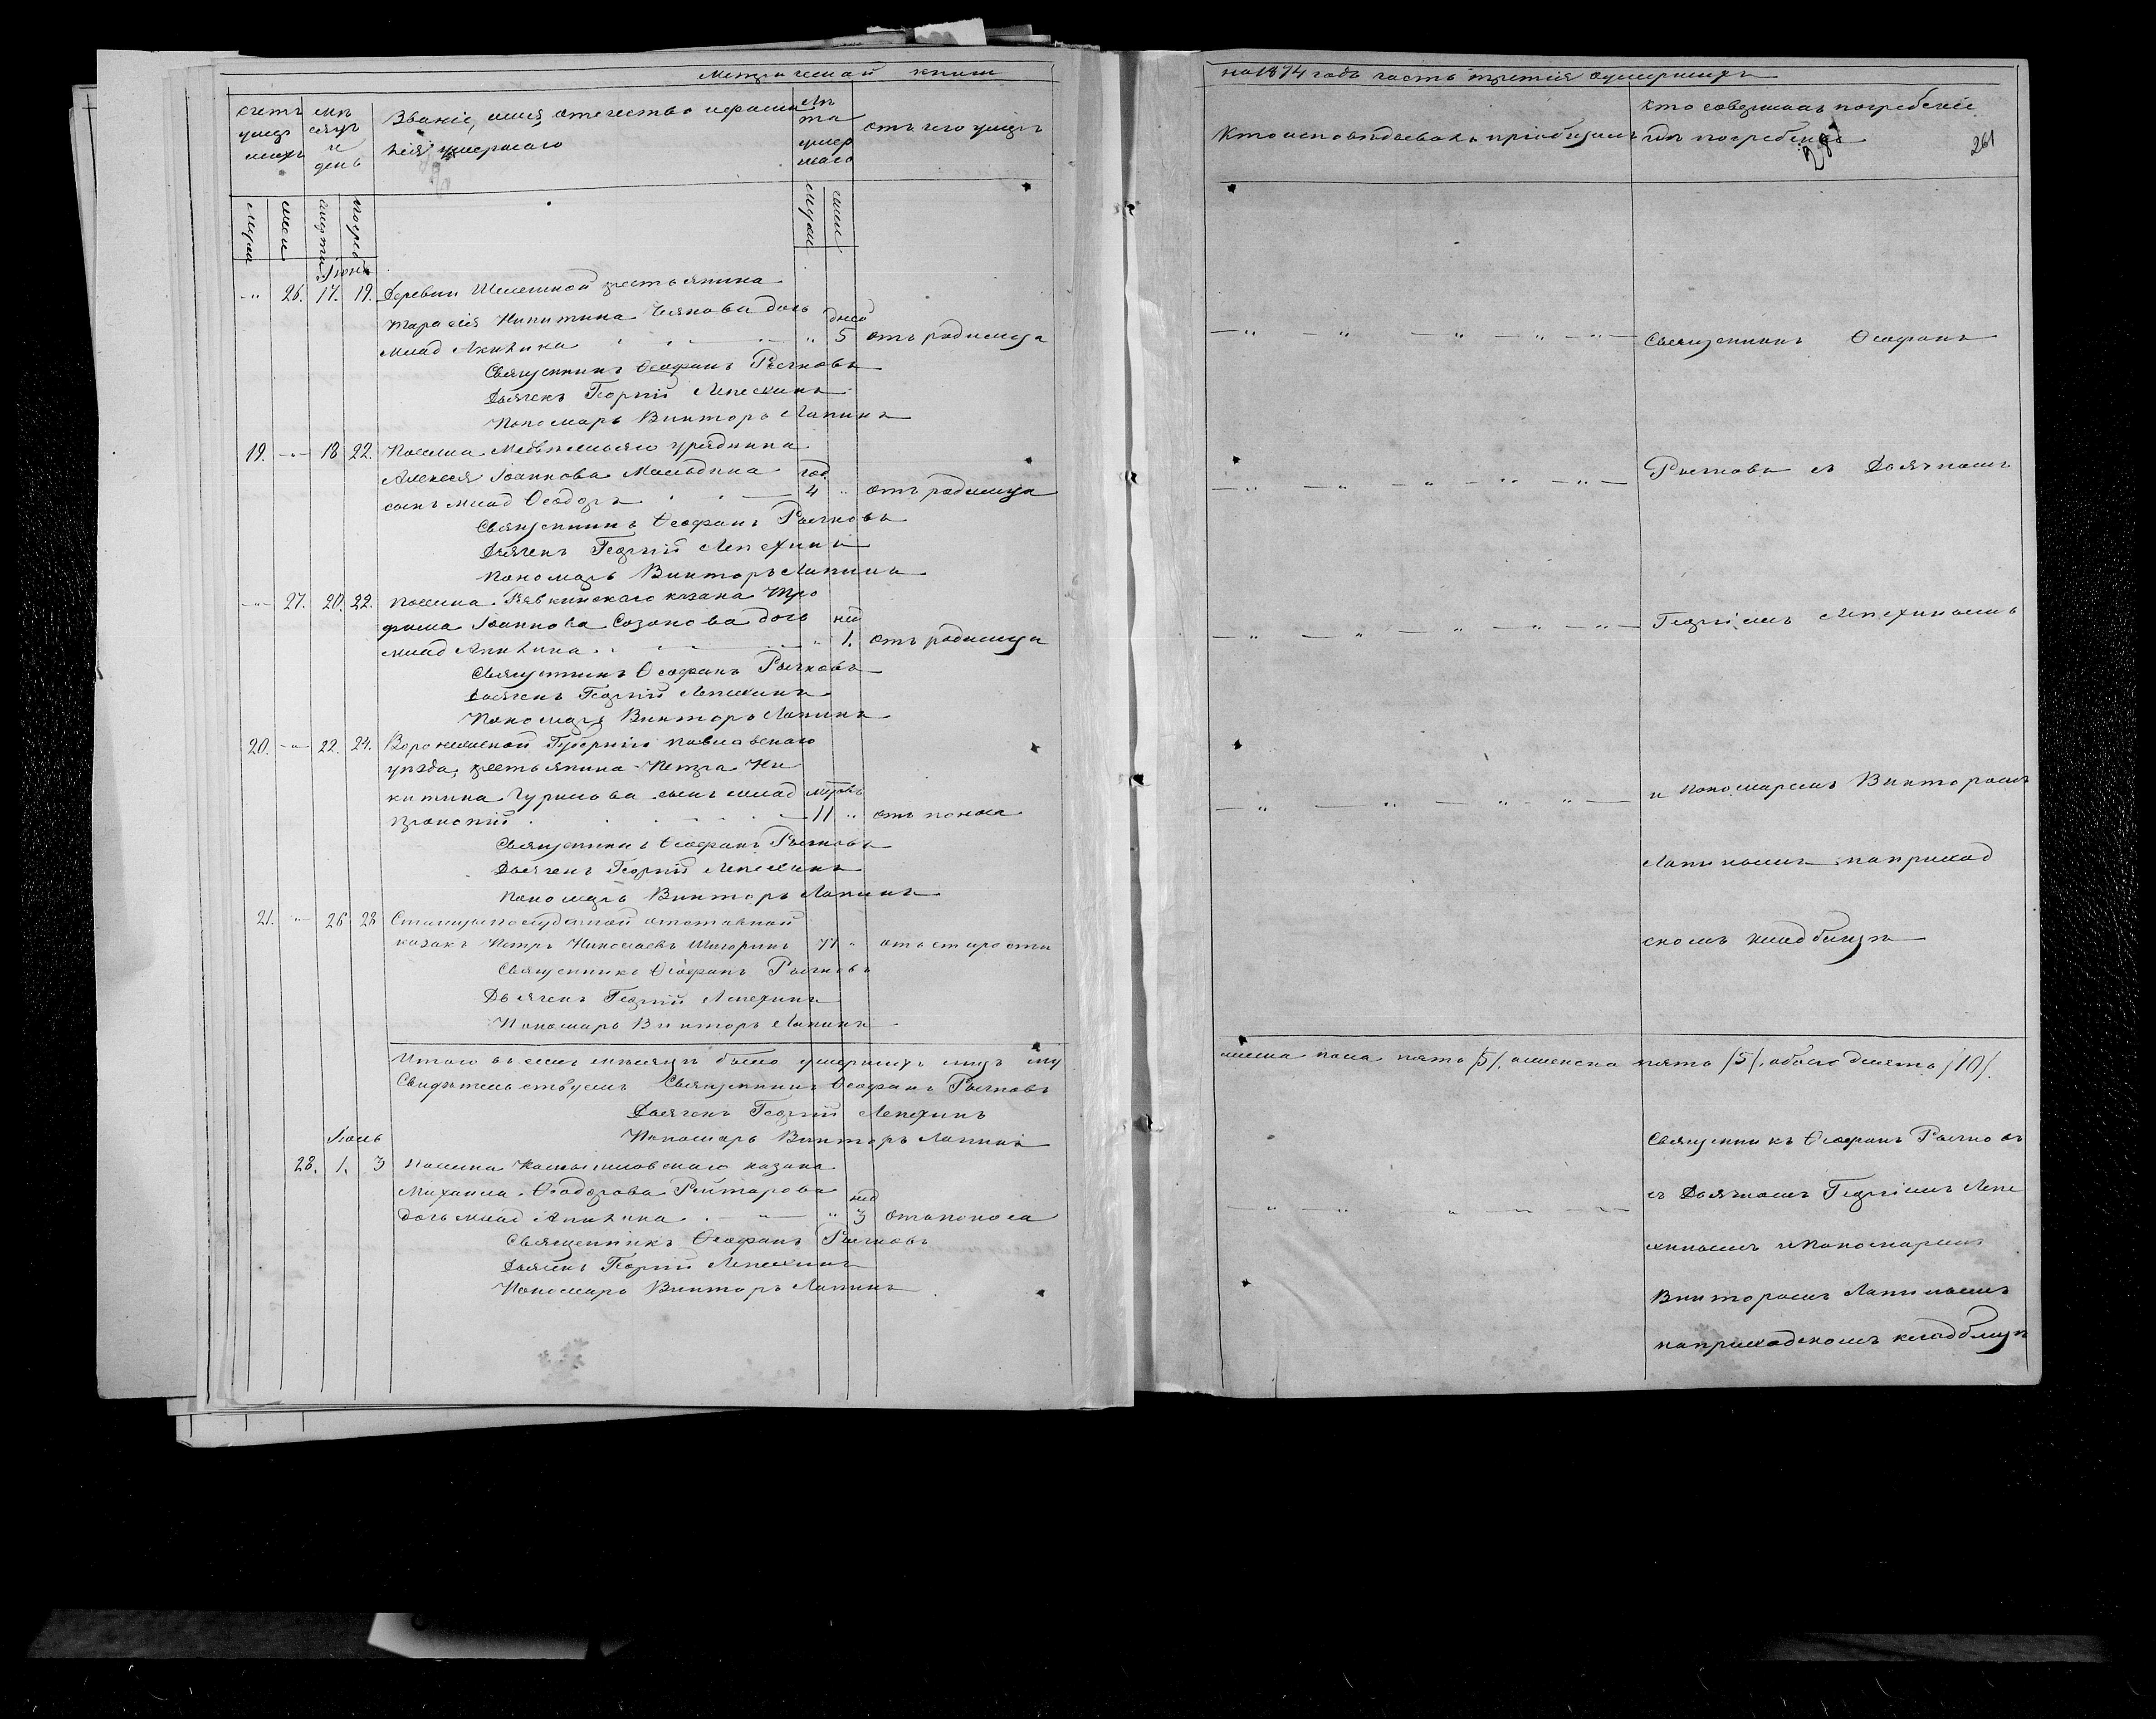 Метрической книги
на 1874 годъ часть третія о умершихъ
261
счетъ умершихъ
мѣсяцъ и день
Званіе, имя, отчество и фамилія умершаго
лѣта умершаго
отъ чего умеръ
Кто исповѣдывалъ и пріобщалъ
Кто совершалъ погребеніе и гдѣ погребены
смерти
погреб
Іюнь
" 26. 17. 19. Деревни крестьянина
Тарасія Никитина дочь дней
млад Акилина " 5 отъ родимца
Священникъ Ѳеофанъ Рычковъ
Дьячекъ Георгій Лепехинъ
Пономарь Викторъ Лапинъ
19. " 18 22. Поселка урядника
Алексѣя Іоаннова год
сынъ млад Ѳеодоръ 4 " отъ родимца
Священникъ Ѳеофанъ Рычковъ
Дьячекъ Георгій Лепехинъ
Пономарь Викторъ Лапинъ
" 27. 20. 22. поселка казака Тро
фима Іоаннова Созонова дочь нед
млад Акилина " 1. отъ родимца
Священникъ Ѳеофанъ Рычковъ
Дьячекъ Георгій Лепехинъ
Пономарь Викторъ Лапинъ
20. " 22. 24. Воронежской Губерніи Павловскаго
уѣзда, крестьянина Петра Ни
китина сынъ млад
Прокопій 11 " отъ поноса
Священникъ Ѳеофанъ Рычковъ
Дьячекъ Георгій Лепехинъ
Пономарь Викторъ Лапинъ
21. " 26 28 Станицы отставной
казакъ Петръ Николаевъ " отъ старости
Священникъ Ѳеофанъ Рычковъ
Дьячекъ Георгій Лепехинъ
Пономарь Викторъ Лапинъ
Итого въ семъ мѣсяцѣ было умершихъ лицъ му
Свидѣтельствуемъ Священникъ Ѳеофанъ Рычковъ
Дьячекъ Георгій Лепехинъ
Пономарь Викторъ Лапинъ
Іюль
28. 1. 3 Поселка казака
Михаила Ѳеодорова нед
дочь млад Акилина " 3 отъ поноса
Священникъ Ѳеофанъ Рычковъ
Дьячекъ Георгій Лепехинъ
Пономарь Викторъ Лапинъ
Священникъ Ѳеофанъ
Рычковъ съ Дьячкомъ
Георгіемъ Лепехинымъ
и Пономаремъ Викторомъ
Лапинымъ на приход
скомъ кладбищѣ
жеска пола пять /5/, женска пять /5/, обоего десять /10/.
Священникъ Ѳеофанъ Рычковъ
съ Дьячкомъ Георгіемъ Лепе
хинымъ и Пономаремъ
Викторомъ Лапинымъ
на приходскомъ кладбищѣ